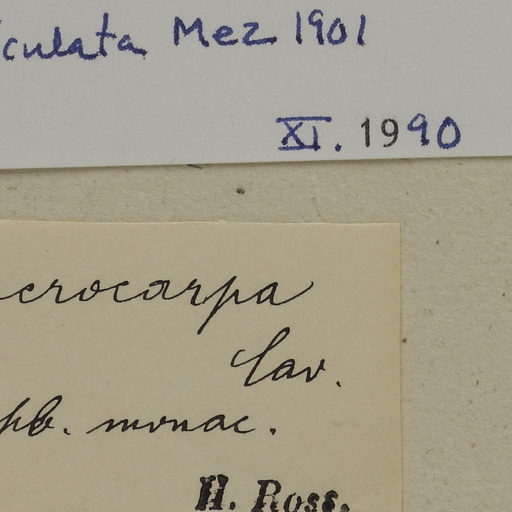 iculata Mez 1901
XI. 1990
crocarpa
Cav.
hb. monac.
H. Ross.